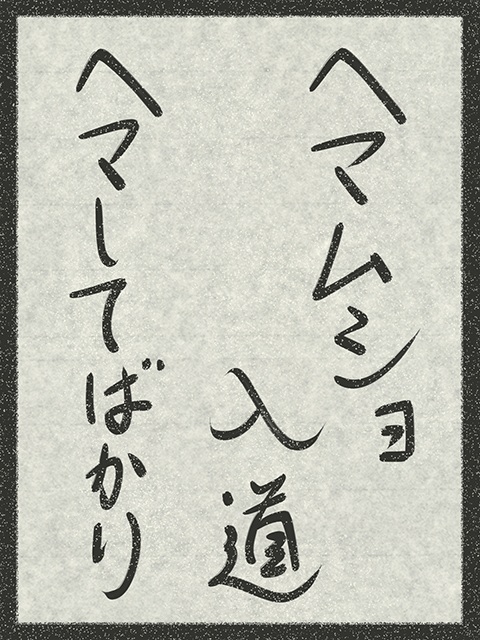 ヘマムショ
入道
ヘマしてばかり